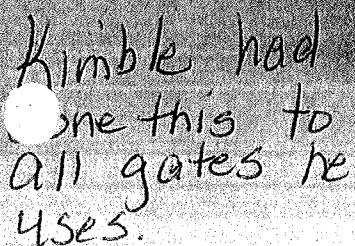 Kimble had
one this to
all gates he
uses.